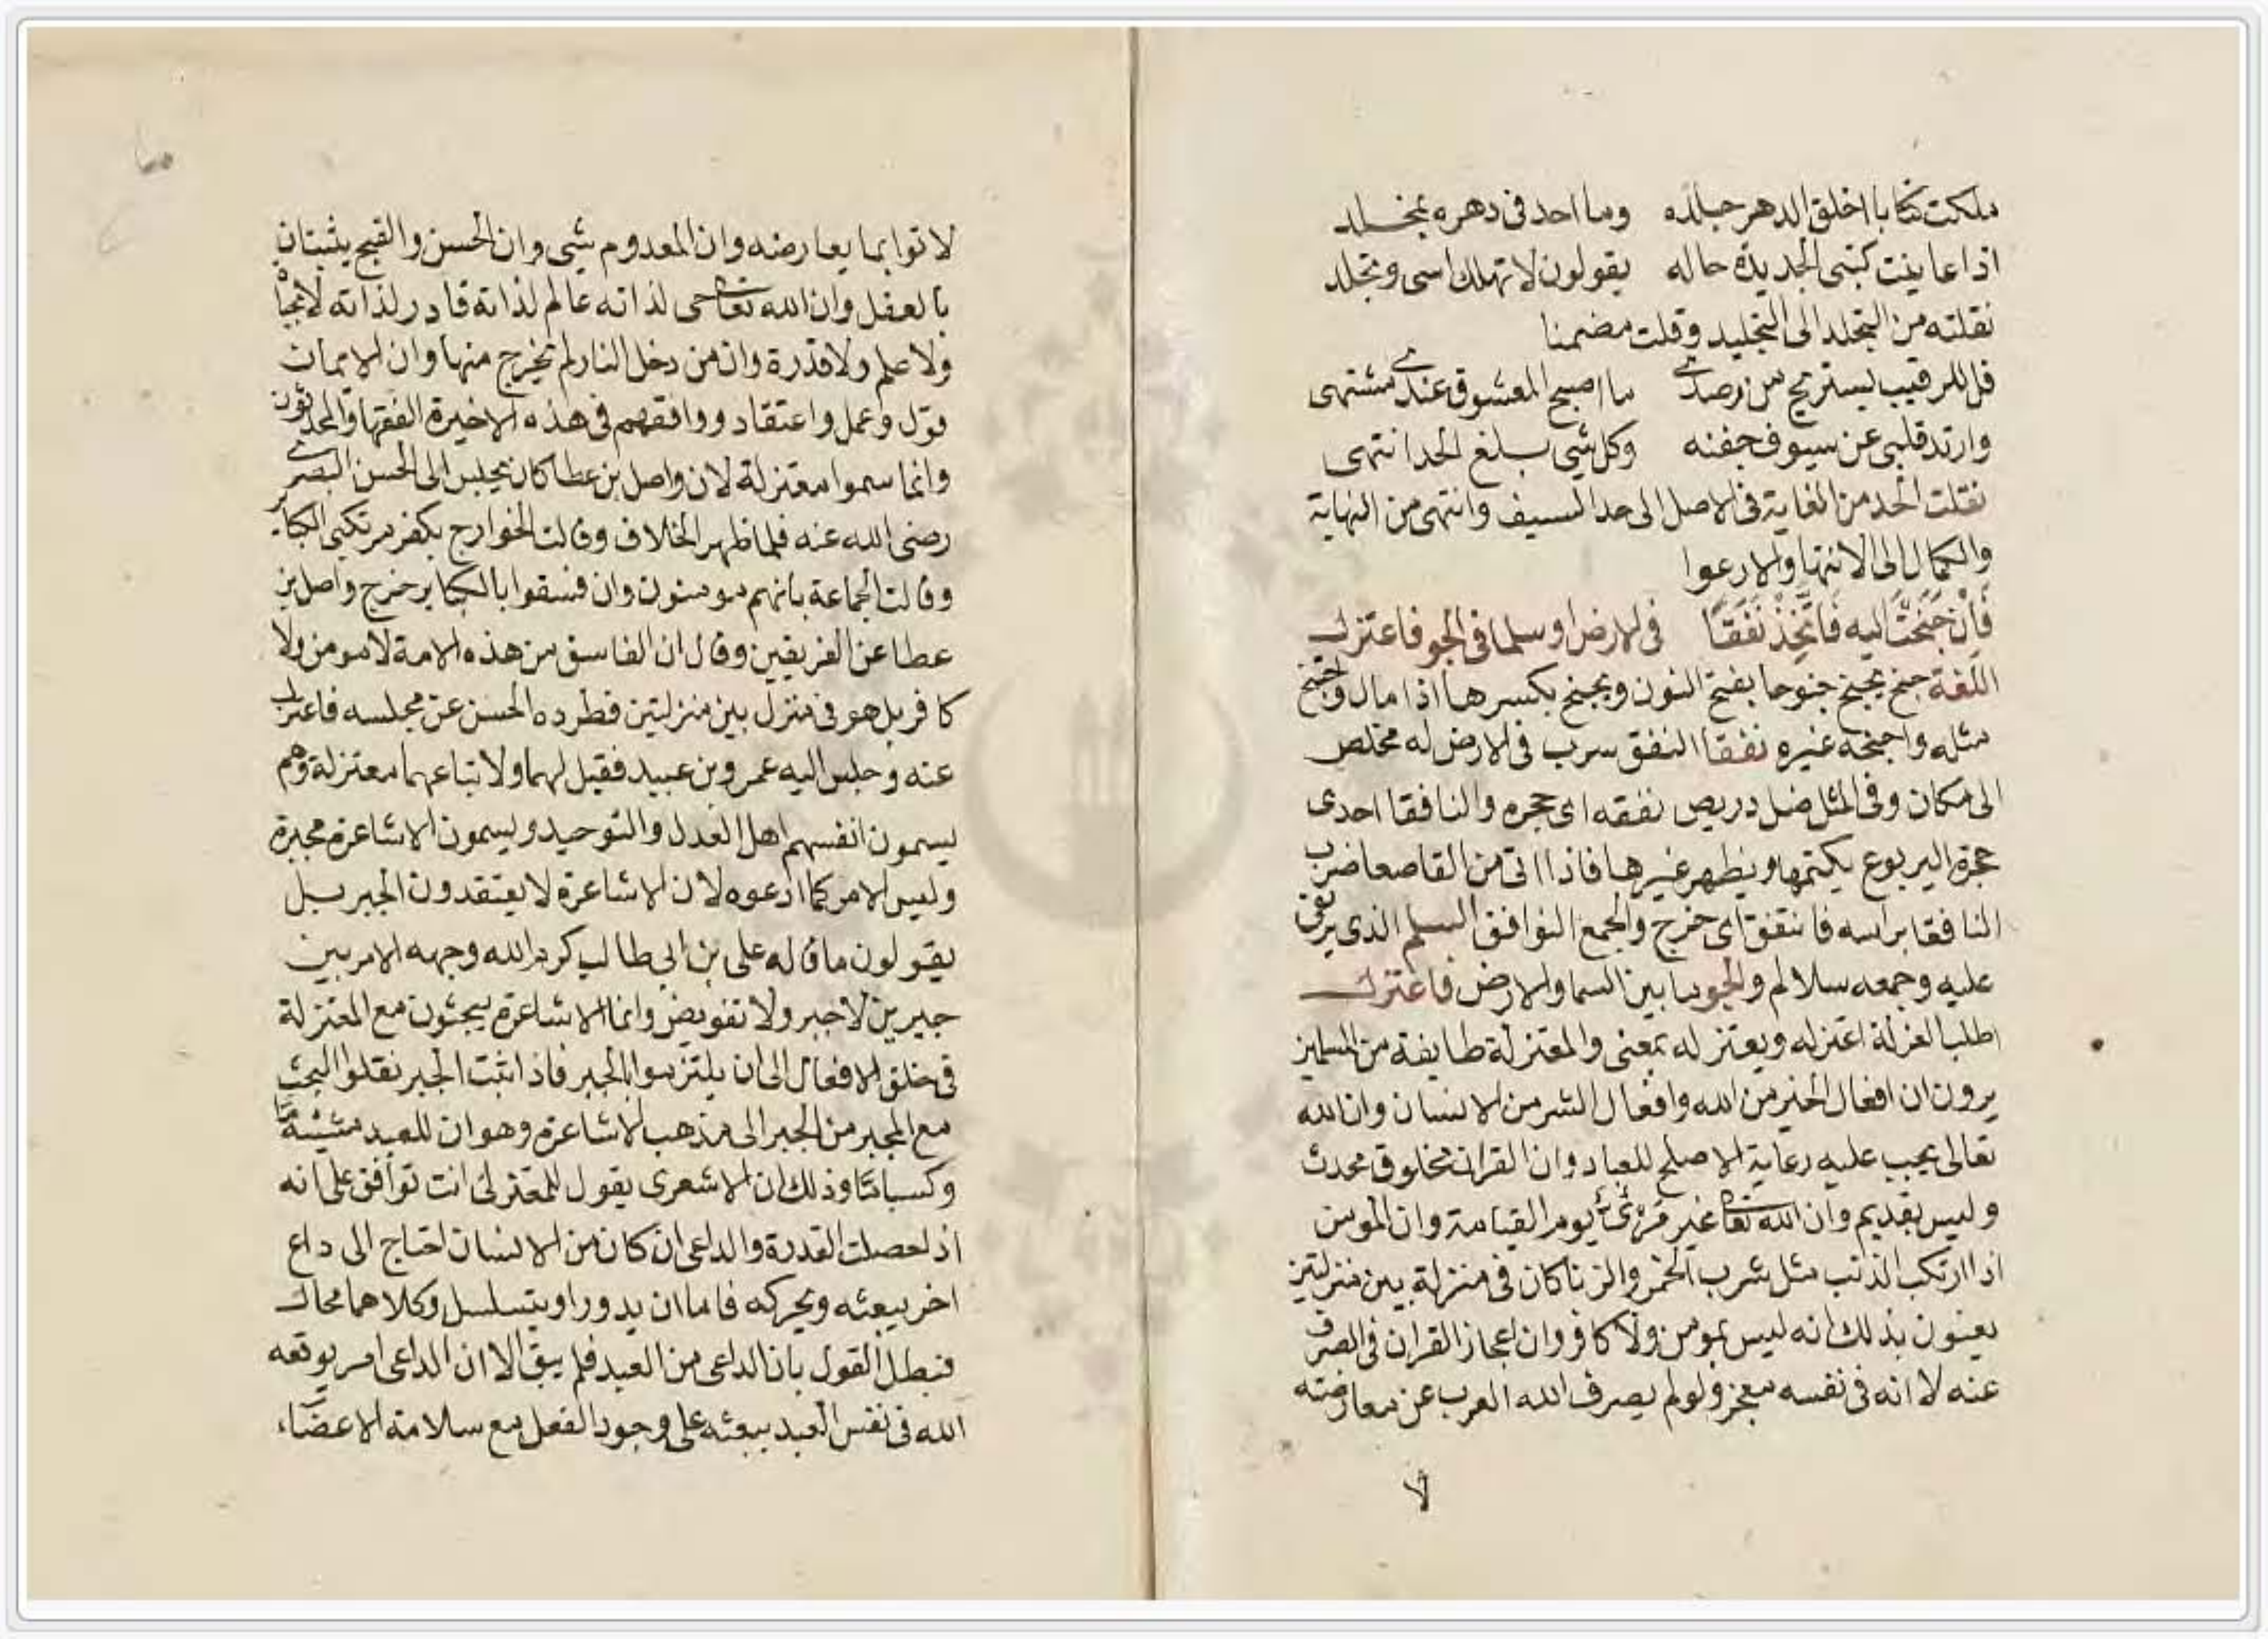 ملكت كتابا اخلق الدهر جلده وما احد فى دهره بمخلد
اذا عاينت كتبى الجديدة حاله يقولون لا تهلك اسى وتجلد
نقلته من التجلد الى التجليد وقلت مضمنا
قل للرقيب يستريح من رصدى ما اصبح المعشوق عندى مشتهى
وارتد قلبى عن سيوف جفنه وكل شى بلغ الحد انتهى
نقلت الحد من الغاية فى الاصل الى حد السيف وانتهى من النهاية
والكمال الى الانتها والارعوا
فَاِنْ جَنَحْتَ اليه فَاتَّخِذْ نَفَقًا فى الارض او سلما فى الجو فاعتزل
اللغة جنح يجنح جنوحا بفتح النون ويجنح بكسرها اذا مال واجتنح
مثله واجنحه غيره نفقا النفق سرب فى الارض له مخلص
الى مكان وفى المثل ضل دريص نفقه اى جحره والنافقا احدى
جحرة اليربوع يكتمها ويظهر غيرها فاذا اتى من القاصعا ضرب
النافقا براسه فانتفق اى خرج والجمع النوافق السلم الذى يرتقى
عليه وجمعه سلالم والجو ما بين السما والارض فاعتزل
اطلب العزلة اعتزله ويعتزله بمعنى والمعتزلة طايفة من المسلمين
يرون ان افعال الخير من الله وافعال الشر من الانسان وان الله
تعالى يجب عليه رعاية الاصلح للعباد وان القران مخلوق محدث
وليس بقديم وان الله تعا غير مرئى يوم القيامة وان المومن
اذا ارتكب الذنب مثل شرب الخمر والزنا كان فى منزلة بين منزلتين
يعنون بذلك انه ليس بمومن ولا كافر وان اعجاز القران فى الصرف
عنه لا انه فى نفسه معجز ولو لم يصرف الله العرب عن معارضته
لا
لاتوا بما يعارضه وان المعدوم شى وان الحسن والقبح يثبتان
بالعقل وان الله تعا حى لذاته عالم لذاته قادر لذاته لا بحياة
ولا علم ولا قدرة وان من دخل النار لم يخرج منها وان الايمان
قول وعمل واعتقاد ووافقهم فى هذه الاخيرة الفقها والمحدثون
وانما سموا معتزلة لان واصل بن عطا كان يجلس الى الحسن البصرى
رضى الله عنه فلما ظهر الخلاف وقالت الخوارج بكفر مرتكبى الكباير
وقالت الجماعة بانهم مومنون وان فسقوا بالكباير خرج واصل بن
عطا عن الفريقين وقال ان الفاسق من هذه الامة لا مومن ولا
كافر بل هو فى منزل بين منزلتين فطرده الحسن عن مجلسه فاعتزل
عنه وجلس اليه عمرو بن عبيد فقيل لهما ولاتباعهما معتزلة وهم
يسمون انفسهم اهل العدل والتوحيد ويسمون الاشاعرة مجبرة
وليس الامر كما ادعوه لان الاشاعرة لا يعتقدون الجبر بل
يقولون ما قاله على بن ابى طالب كرم الله وجهه الامر بين
جبرين لا جبر ولا تفويض وانما الاشاعرة يبحثون مع المعتزلة
فى خلق الافعال الى ان يلتزموا بالجبر فاذا ثبت الجبر نقلوا البحث
مع المجبر من الجبر الى مذهب الاشاعرة وهو ان للعبد مشيئة ما
وكسبا ما وذلك ان الاشعرى يقول للمعتزلى انت توافق على انه
اذا حصلت القدرة والداعى ان كان من الانسان احتاج الى داع
اخر يبعثه ويحركه فاما ان يدور او يتسلسل وكلاهما محال
فبطل القول بان الداعى من العبد فلم يبق الا ان الداعى امر يوقعه
الله فى نفس العبد يبعثه على وجود الفعل مع سلامة الاعضاء